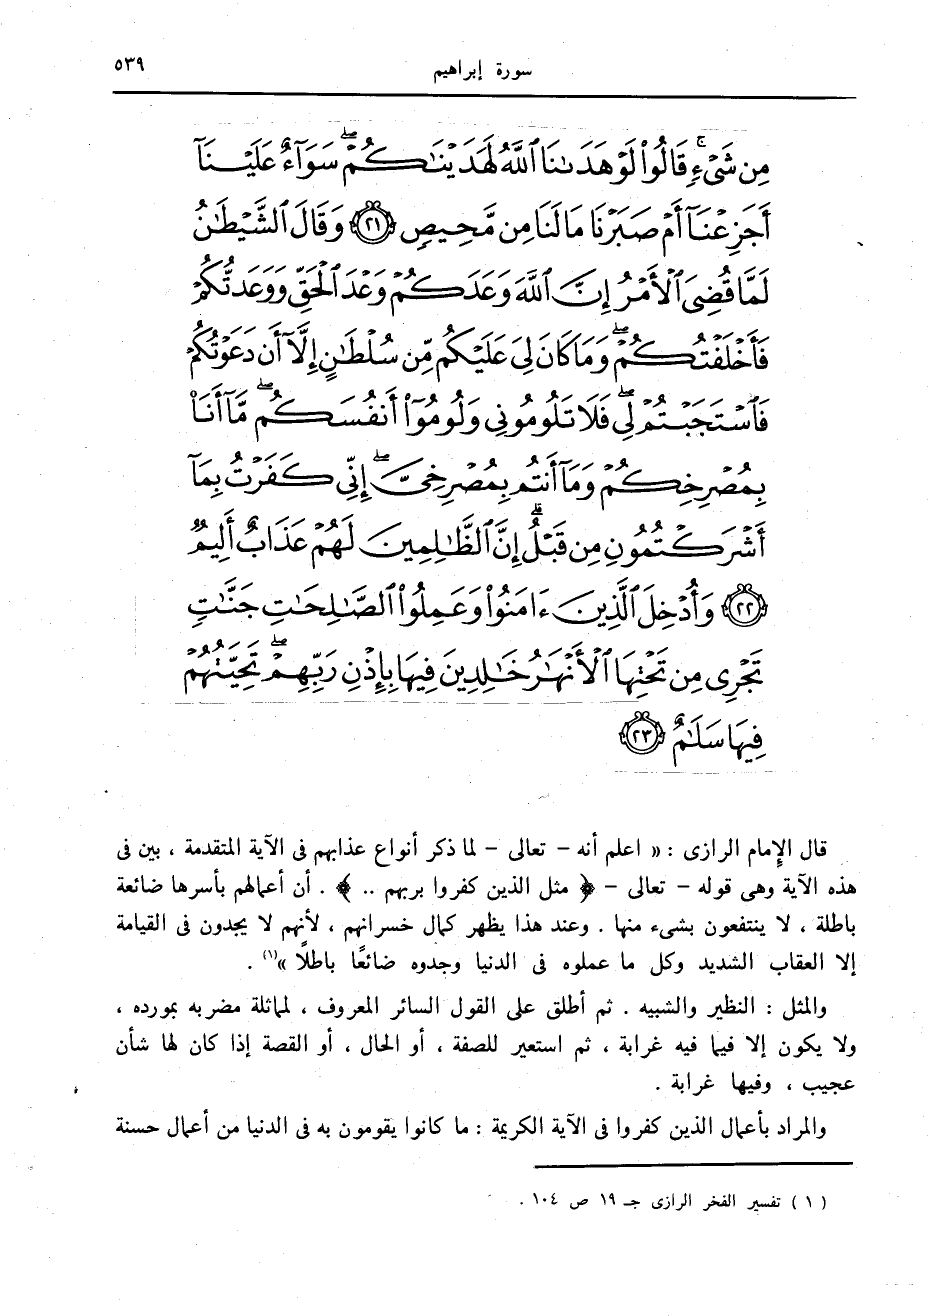 سورة إبراهيم ٥٣٩
مِن شَىْءٍۚ قَالُوا۟ لَوْ هَدَىٰنَا ٱللَّهُ لَهَدَيْنَـٰكُمْۖ سَوَآءٌ عَلَيْنَآ
أَجَزِعْنَآ أَمْ صَبَرْنَا مَا لَنَا مِن مَّحِيصٍ ٢١ وَقَالَ ٱلشَّيْطَـٰنُ
لَمَّا قُضِىَ ٱلْأَمْرُ إِنَّ ٱللَّهَ وَعَدَكُمْ وَعْدَ ٱلْحَقِّ وَوَعَدتُّكُمْ
فَأَخْلَفْتُكُمْۖ وَمَا كَانَ لِىَ عَلَيْكُم مِّن سُلْطَـٰنٍ إِلَّآ أَن دَعَوْتُكُمْ
فَٱسْتَجَبْتُمْ لِىۖ فَلَا تَلُومُونِى وَلُومُوٓا۟ أَنفُسَكُمۖ مَّآ أَنَا۠
بِمُصْرِخِكُمْ وَمَآ أَنتُم بِمُصْرِخِىَّۖ إِنِّى كَفَرْتُ بِمَآ
أَشْرَكْتُمُونِ مِن قَبْلُۗ إِنَّ ٱلظَّـٰلِمِينَ لَهُمْ عَذَابٌ أَلِيمٌ
٢٢ وَأُدْخِلَ ٱلَّذِينَ ءَامَنُوا۟ وَعَمِلُوا۟ ٱلصَّـٰلِحَـٰتِ جَنَّـٰتٍ
تَجْرِى مِن تَحْتِهَا ٱلْأَنْهَـٰرُ خَـٰلِدِينَ فِيهَا بِإِذْنِ رَبِّهِمْۖ تَحِيَّتُهُمْ
فِيهَا سَلَـٰمٌ ٢٣
قال الإمام الرازى : « اعلم أنه - تعالى - لما ذكر أنواع عذابهم فى الآية المتقدمة ، بين فى
هذه الآية وهى قوله - تعالى - ﴿ مثل الذين كفروا بربهم .. ﴾ . أن أعمالهم بأسرها ضائعة
باطلة ، لا ينتفعون بشىء منها . وعند هذا يظهر كمال خسرانهم ، لأنهم لا يجدون فى القيامة
إلا العقاب الشديد وكل ما عملوه فى الدنيا وجدوه ضائعًا باطلًا »(١) .
والمثل : النظير والشبيه . ثم أطلق على القول السائر المعروف ، لمماثلة مضربه بمورده ،
ولا يكون إلا فيما فيه غرابة ، ثم استعير للصفة ، أو الحال ، أو القصة إذا كان لها شأن
عجيب ، وفيها غرابة .
والمراد بأعمال الذين كفروا فى الآية الكريمة : ما كانوا يقومون به فى الدنيا من أعمال حسنة
( ١ ) تفسير الفخر الرازى جـ ١٩ ص ١٠٤ .